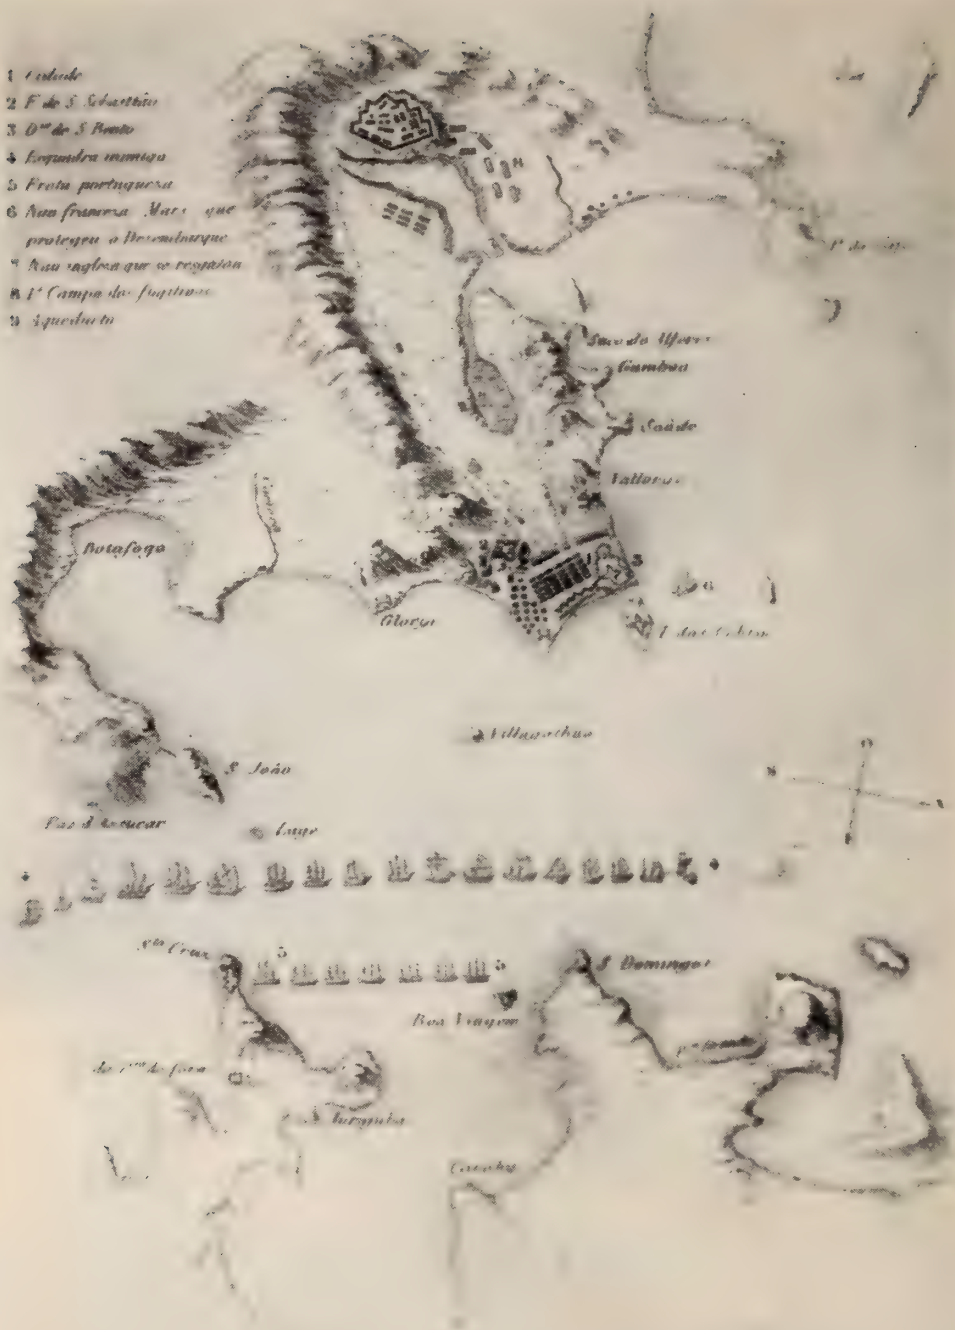 1 Cidade
2 F de S. Sebastião
3 D.ᵐ de S Bento
4 Esquadra inimiga
5 Frota portugueza
6 Nau franceza Mars que
protegeu o Desembarque
7 Nau ingleza que se
8 1º Campo dos fugitivos
9 Aqueducto
Sacco do Alferes
Gamboa
Saúde
Vallongo
Botafogo
Carioca
3
6
Gloria
I. das Cobras
Villegaihao
S. João
Pao d'Assucar
Lage
4
4
Sta Cruz
5
5
S Domingos
Boa Viagem
de fora
Jurujuba
Carahy